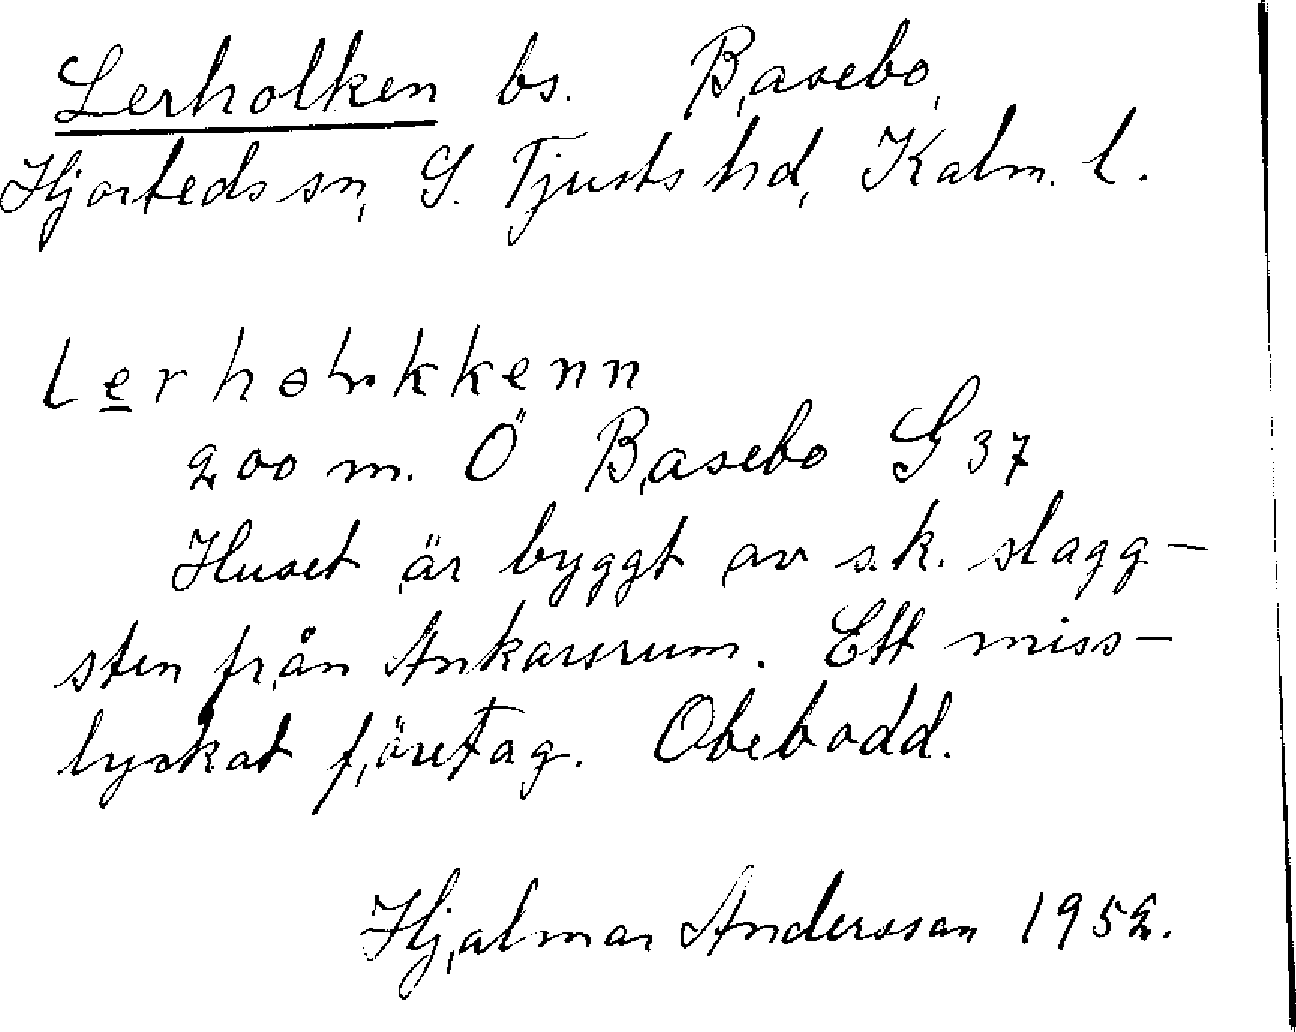 Lerholken bs. Basebo,
Hjorteds sn, S. Tjusts hd, Kalm. l.
200 m. Ö Basebo S 37
Huset är byggt av s.k. slagg-
sten från Ankarsrum. Ett miss-
lyckat företag. Obebodd.
Hjalmar Andersson 1952.